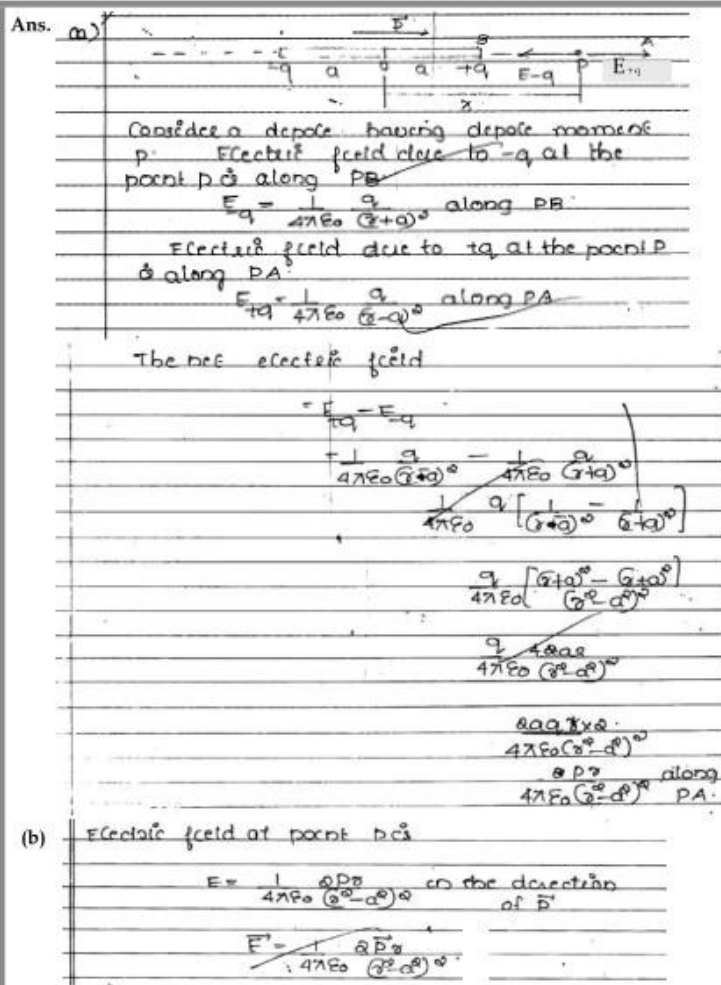 Ans. (a) P⃗
-q a o a +q B E-q P E+q A
x
Consider a dipole having dipole moment
p. Electric field due to -q at the
point P is along PB
E-q = 1/4πε0 q/(r+a)² along PB.
Electric field due to +q at the point P
is along PA.
E+q = 1/4πε0 q/(r-a)² along PA
The net electric field
= E+q - E-q
= 1/4πε0 q/(r-a)² - 1/4πε0 q/(r+a)²
1/4πε0 q [1/(r-a)² - 1/(r+a)²]
q/4πε0 [(r+a)² - (r+a)² / (r²-a²)²]
q/4πε0 4ar/(r²-a²)²
2aqr×2/4πε0(r²-a²)²
2Pr/4πε0(r²-a²)² along
PA.
(b) Electric field at point P is
E = 1/4πε0 2Pr/(r²-a²)² in the direction
of P⃗
E⃗ = 1/4πε0 2P⃗r/(r²-a²)²